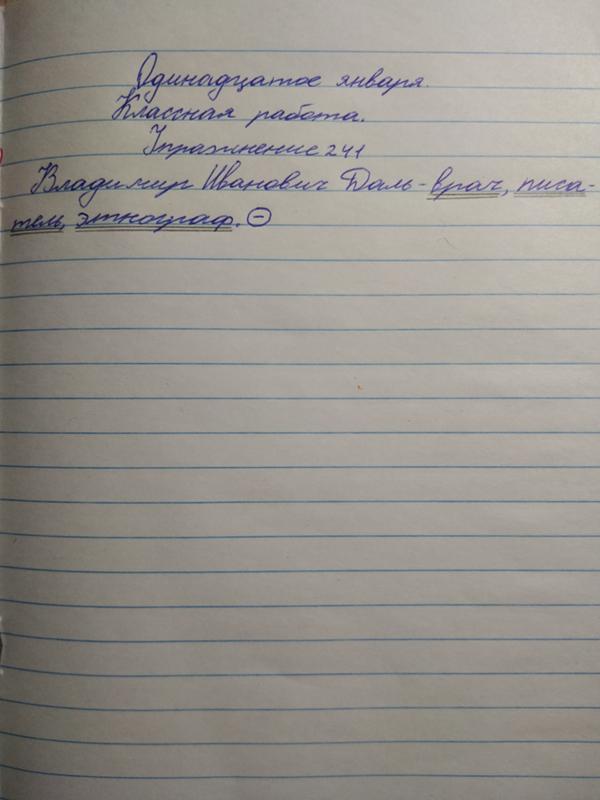 Одинадцатое января.
Классная работа.
Упражнение 241
Владимир Иванович Даль - врач, писа-
тель, этнограф. ⊖